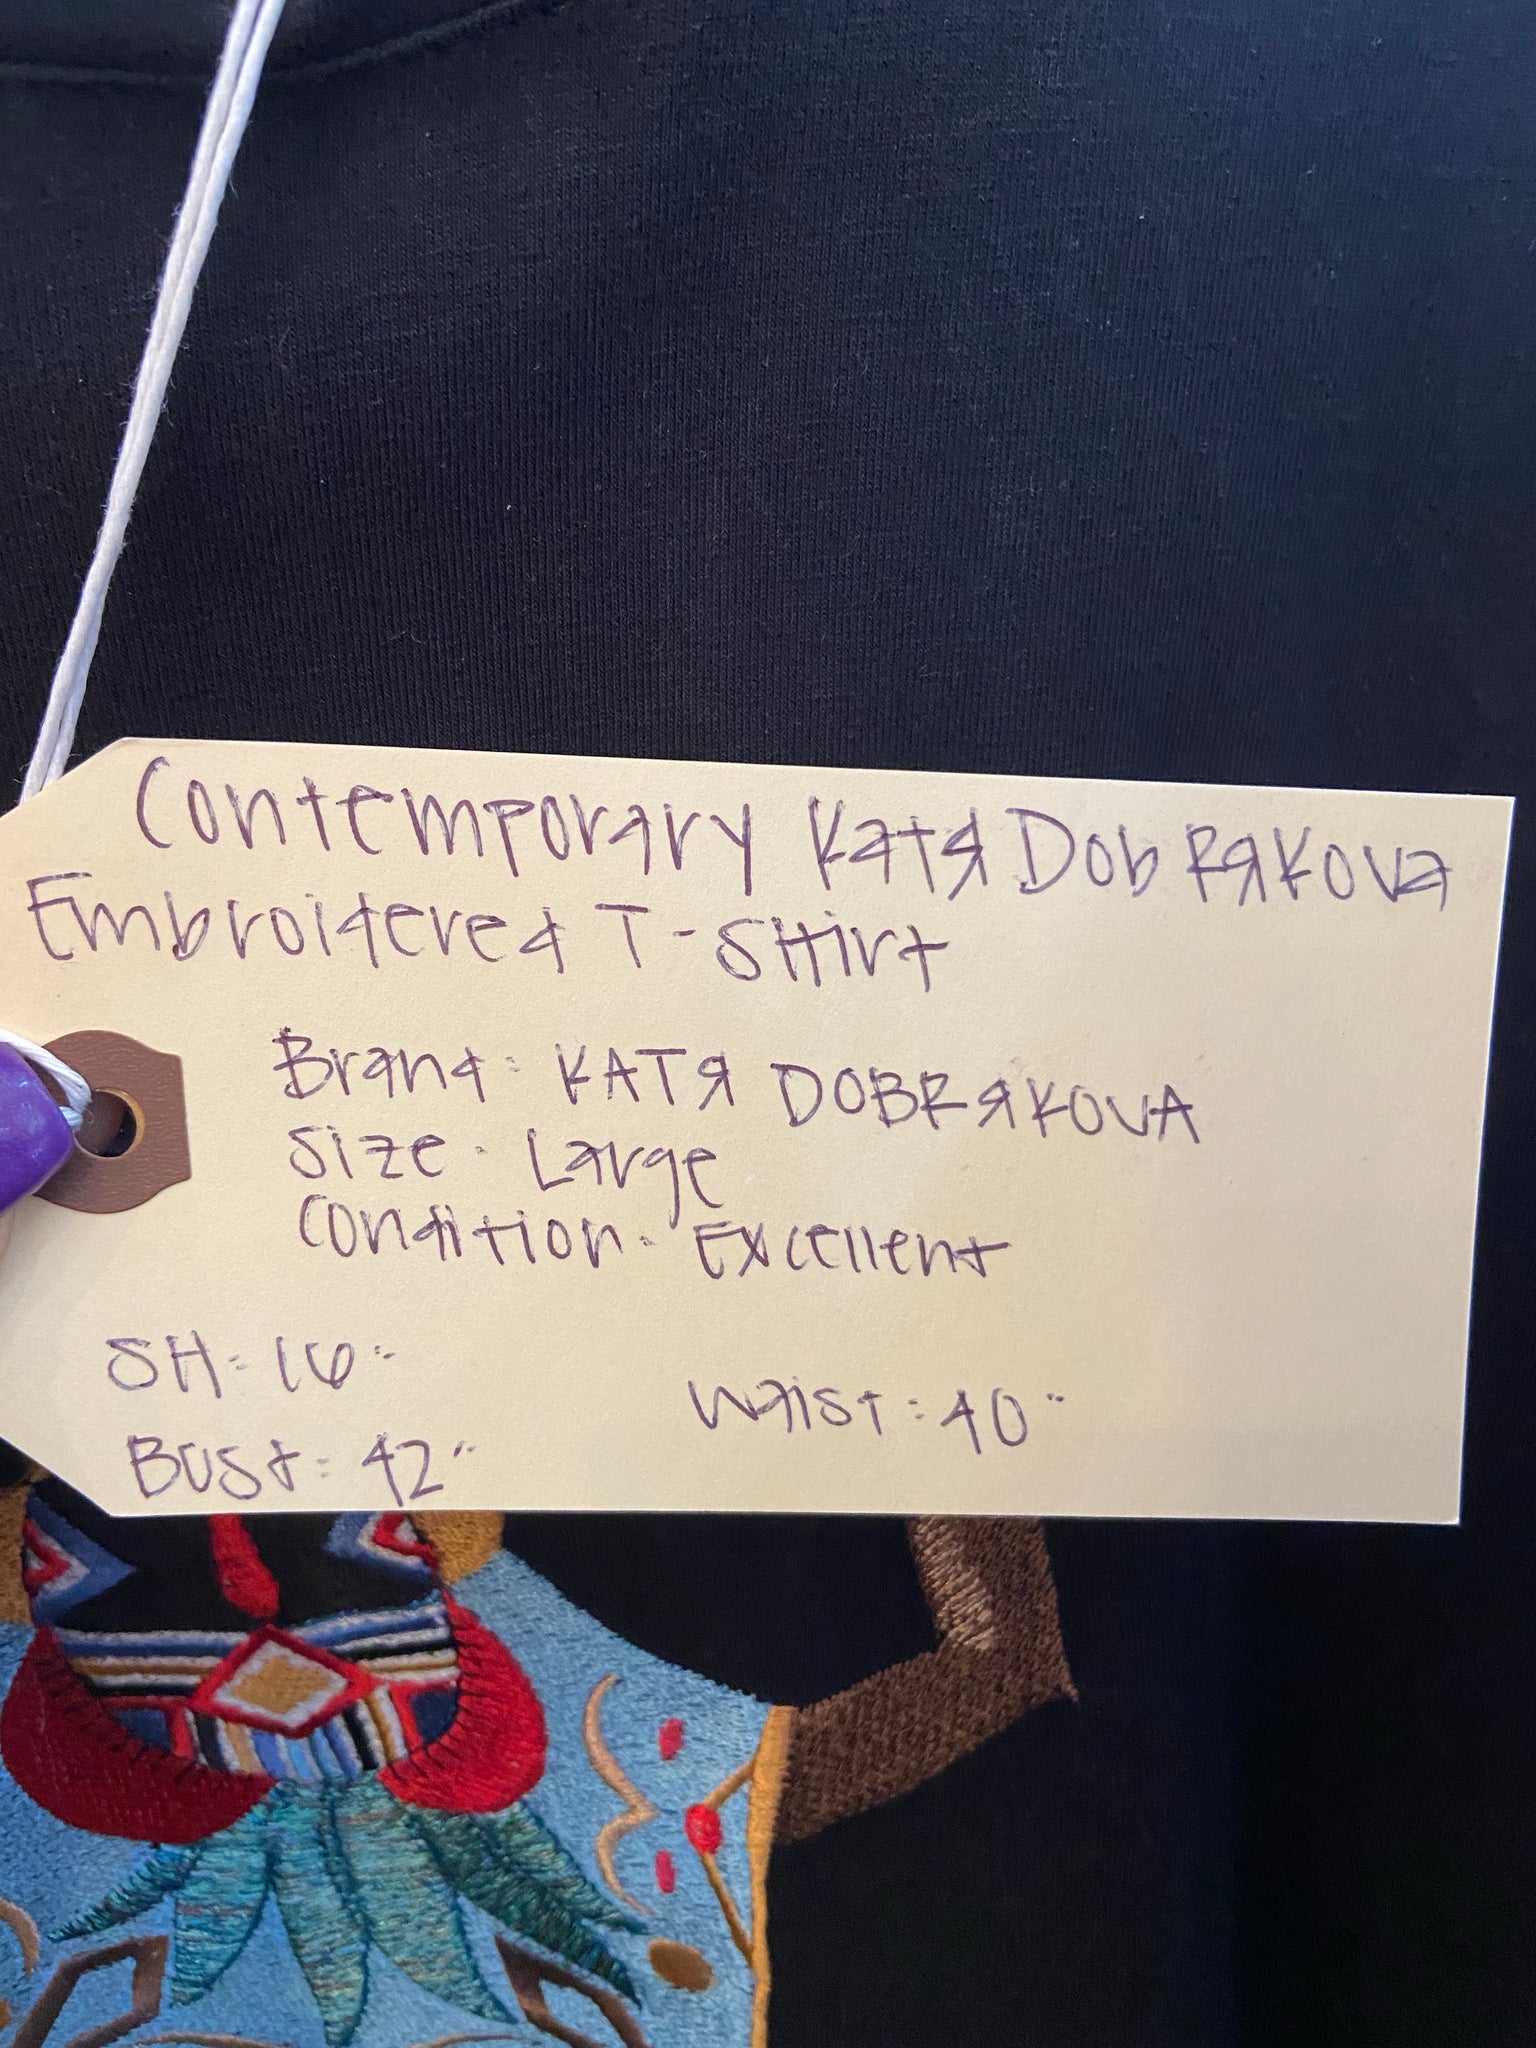 Contemporary KatЯ DobRЯKova
Embroidered T-SHirt
Brand: KATЯ DOBRЯKOVA
Size: Large
Condition: Excellent
SH: 16"
Waist: 40"
Bust: 42"